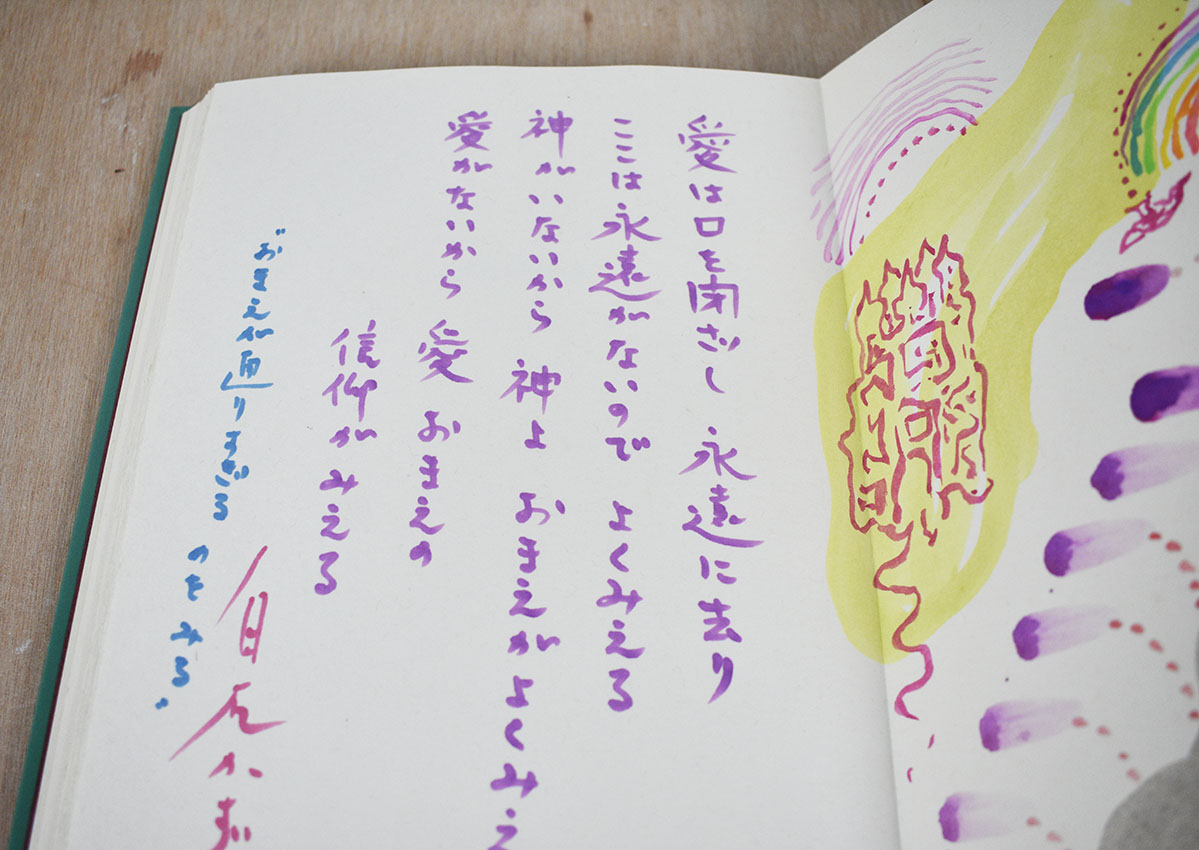 愛は口を閉ざし 永遠に去り
ここは永遠がないので よくみえる
神がいないから 神よ おまえがよくみえ
愛がないから 愛 おまえの
信仰がみえる
"おまえが通りすぎる のをみる"
白石かず